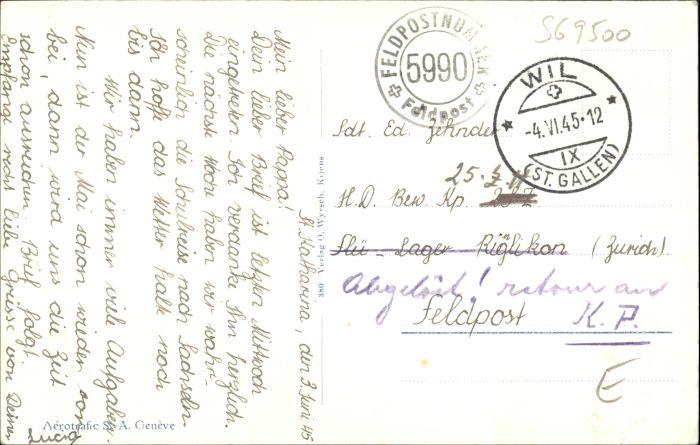 St. Katharina, den 3. Juni 45
Mein lieber Pappa!
Dein lieber Brief ist letzten Mittwoch
eingetroffen. Ich verdanke Ihn herzlich.
Die nächst Woch haben wir wahr-
scheinlich die Schulreise nach Sachseln.
Ich hoffe das Wetter halte noch
bis dann.
Wir haben immer viel Aufgaben.
Nun ist der Mai schon wieder vor-
bei, dann wird uns die Zeit
schon ausreichen. Brief folgt.
Empfange recht liebe Grüsse von Deiner
Lucia
Aérotrafic S. A. Genève
380 Verlag O. Wyrsch, Kriens
FELDPOSTNUMMER
5990
Feldpost
S69500
WIL
-4.VI.45-12
IX
(ST. GALLEN)
Sdt. Ed. Zehnder
25.
H.D. Bew. Kp.
Flü-Lager Riglikon (Zürich).
Abgelöst! retour an
Feldpost K.P.
E